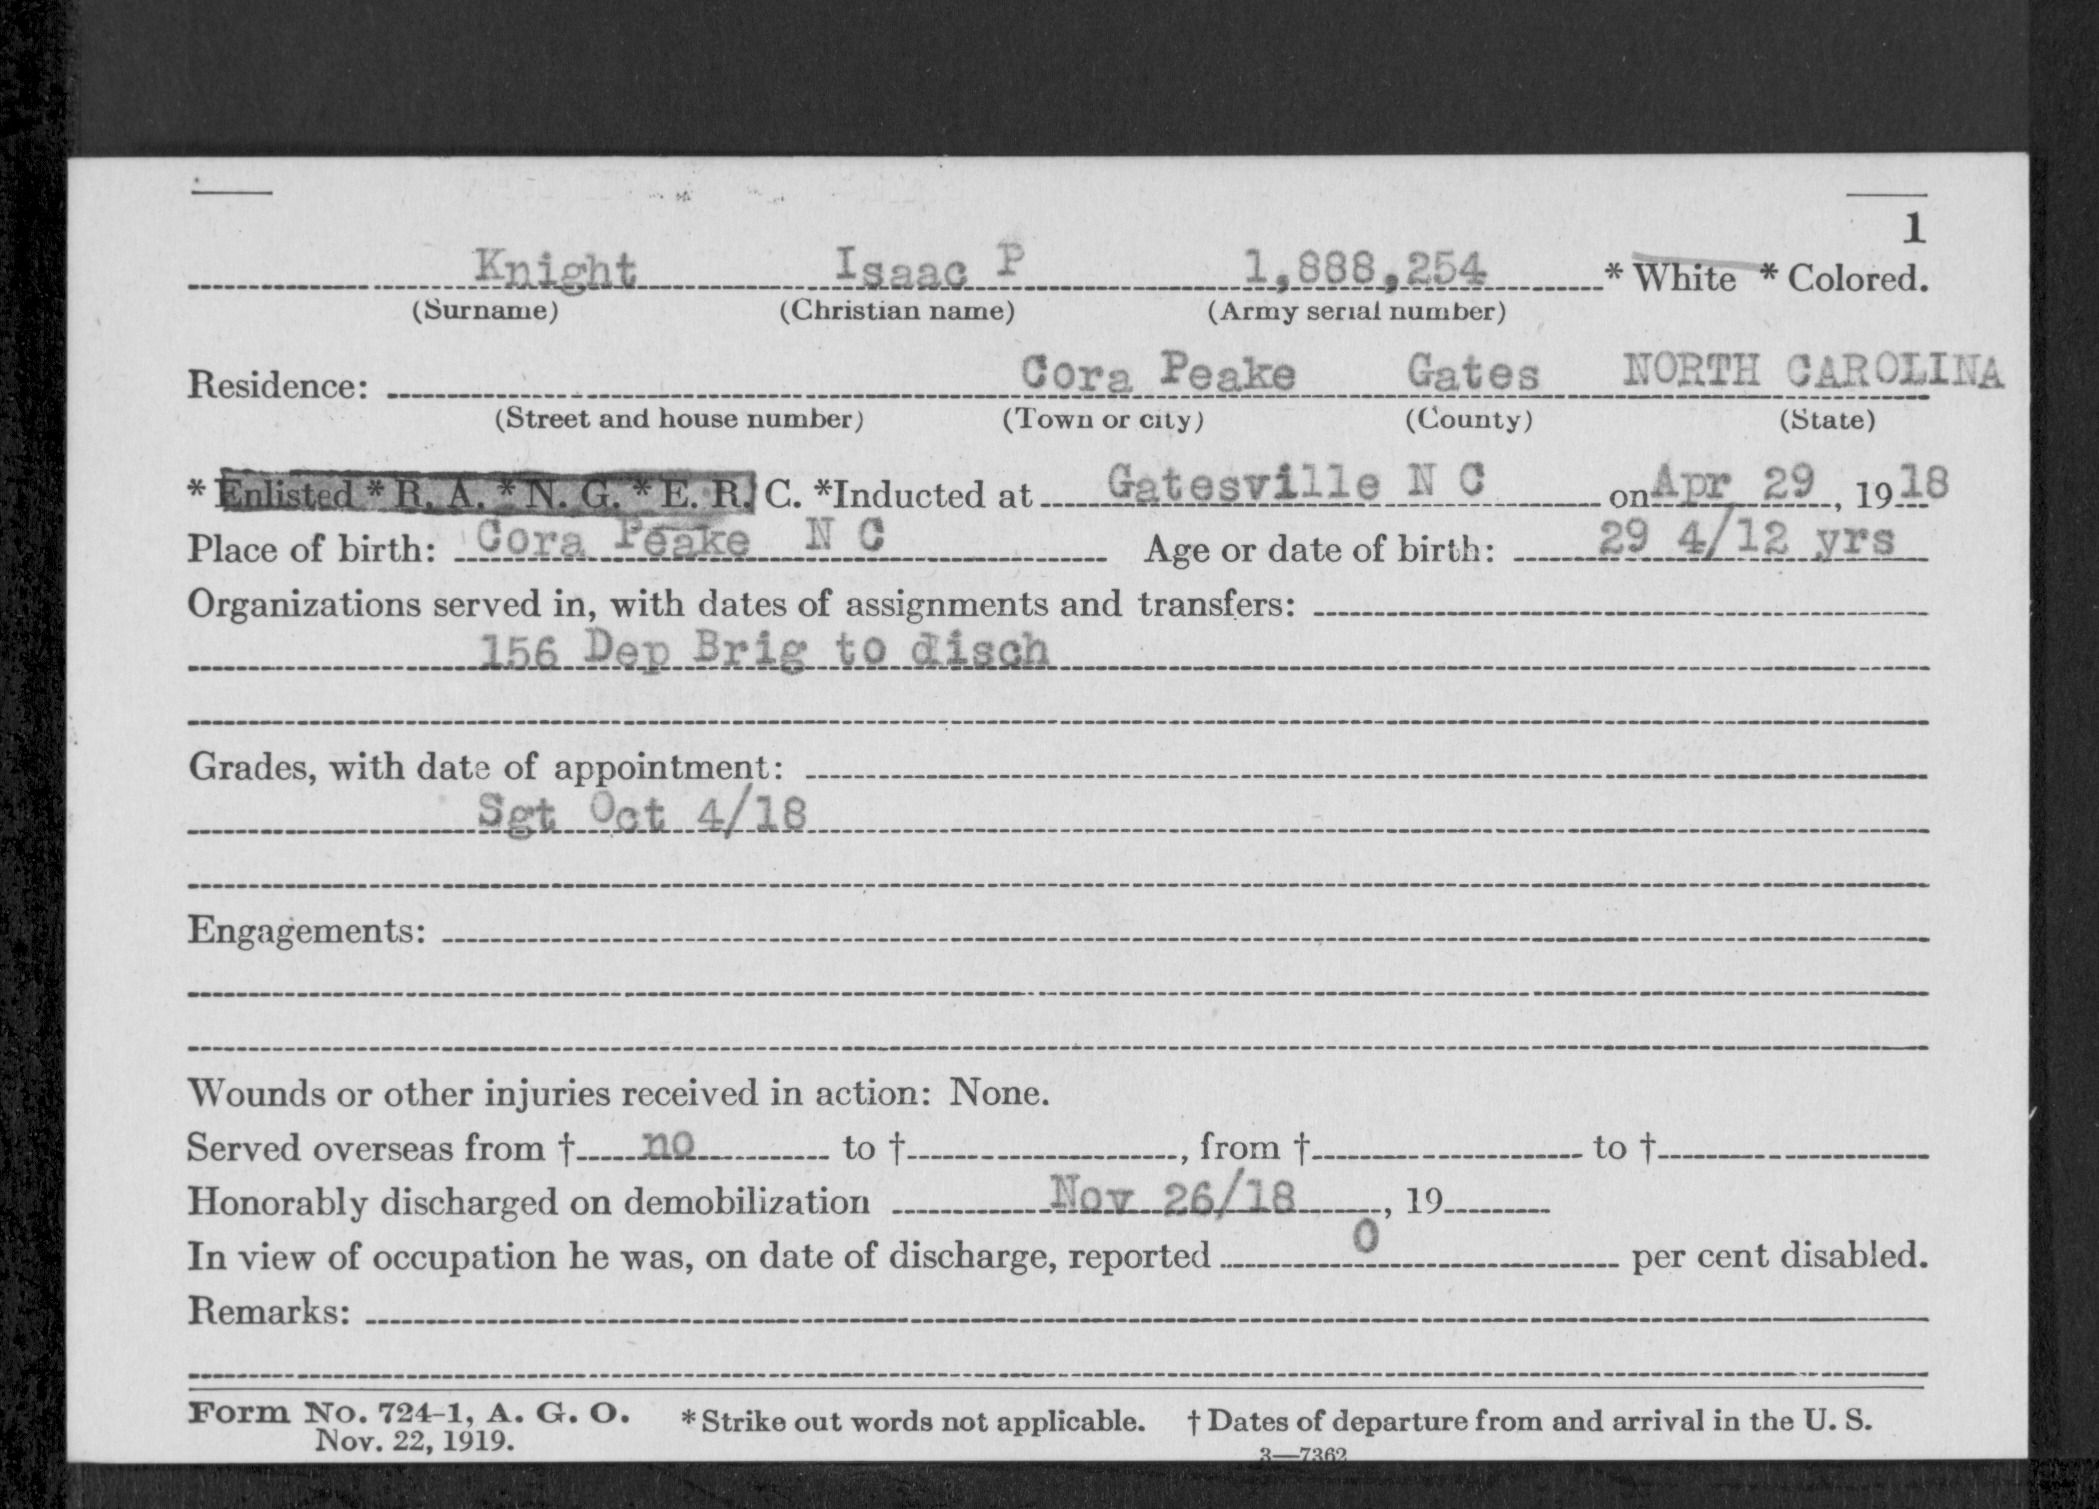 1
Knight Isaac P 1,888,254 * White * Colored.
(Surname) (Christian name) (Army serial number)
Cora Peake Gates NORTH CAROLINA
Residence:
(Street and house number) (Town or city) (County) (State)
* Enlisted * R. A. * N. G. * E. R. C. *Inducted at Gatesville N C on Apr 29, 1918
Place of birth: Cora Peake N C Age or date of birth: 29 4/12 yrs
Organizations served in, with dates of assignments and transfers:
156 Dep Brig to disch
Grades, with date of appointment:
Sgt Oct 4/18
Engagements:
Wounds or other injuries received in action: None.
Served overseas from † no to †, from † to †
Honorably discharged on demobilization Nov 26/18, 19
In view of occupation he was, on date of discharge, reported 0 per cent disabled.
Remarks:
Form No. 724-1, A. G. O. * Strike out words not applicable. † Dates of departure from and arrival in the U. S.
Nov. 22, 1919.
3—7362